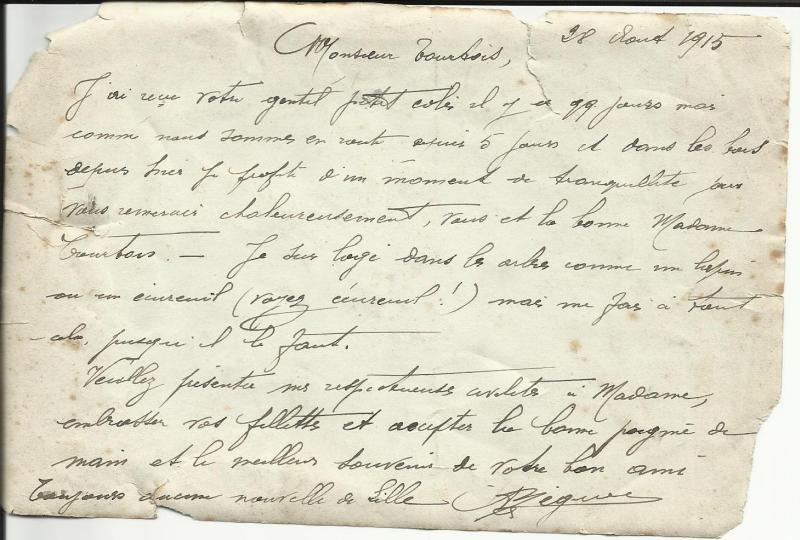 28 Aout 1915
Monsieur Tourbois,
J'ai reçu votre gentil petit colis il y a qq. jours mais
comme nous sommes en route depuis 5 jours et dans les bois
depuis hier je profite d'un moment de tranquillité pour
vous remercier chaleureusement, vous et la bonne Madame
Tourbois. — Je suis logé dans les arbres comme un lapin
ou un écureuil (voyez écureuil!) mais me fais à tout
cela, puisqu'il le faut.
Veuillez présenter mes respectueuses civilités à Madame,
embrasser vos fillettes et accepter la bonne poignée de
main et le meilleur souvenir de votre bon ami
Toujours aucune nouvelle de Lille